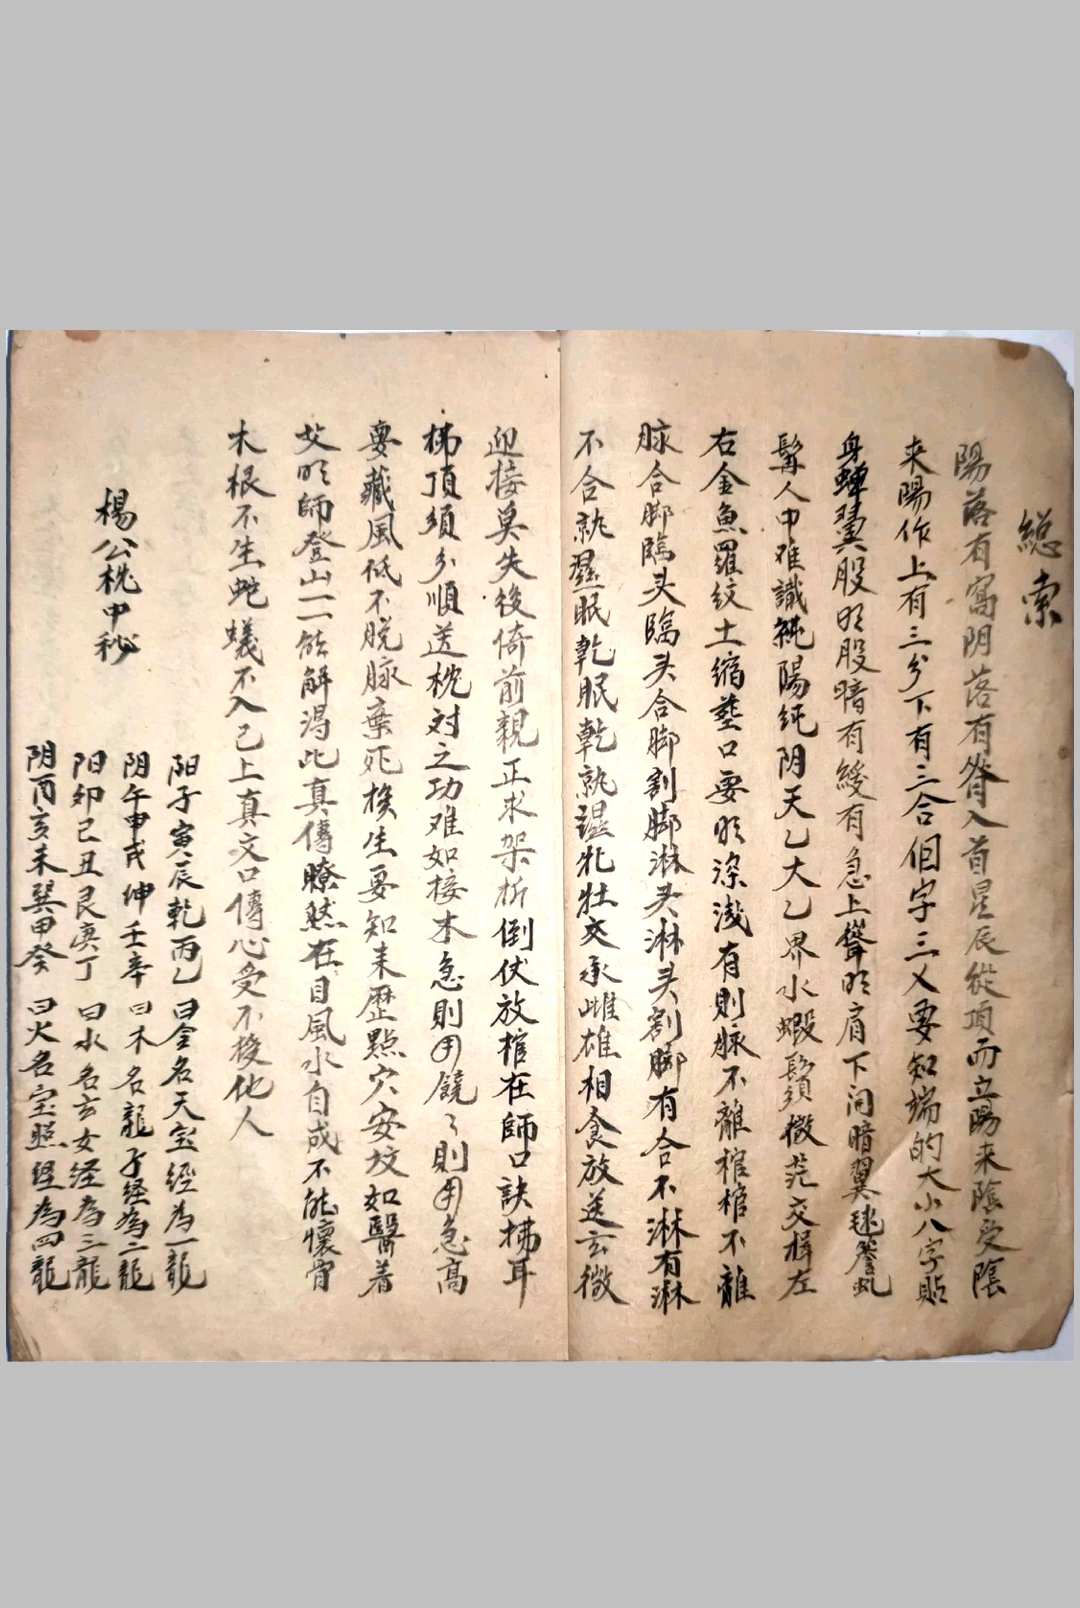 総索
陽落有窩阴落有脊入首星辰從項而立陽来陰受陰
来陽作上有三分下有三合個字三乂要知端的大小八字貼
身蟬翼股明股暗有緩有急上聳明肩下问暗翼毬簷虬
髯人中难識純陽純阴天乙大乙界水蝦鬚微茫交揖左
右金魚羅紋土缩塟口要明深浅有則脉不離棺棺不離
脉合脚臨头臨头合脚割脚淋头淋头割脚有合不淋有淋
不合孰湿眠乾眠乾孰湿牝牡交承雌雄相食放送玄微
迎接莫失後倚前親正求架折倒仗放棺在師口訣梻耳
梻頂須分順送枕対之功难如接木急則用饒々則用急高
要藏風低不脱脉棄死挨生要知来歷點穴安坟如醫着
艾明師登山一一能解渴此真傳瞭然在目風水自成不能懷骨
木根不生蛇蟻不入已上真文口傳心受不授他人
楊公枕中秘
阳子寅辰乾丙乙曰金名天宝經為一龍
阴午申戌坤壬辛曰木名龍子経為二龍
阳卯已丑艮庚丁曰水名玄女経為三龍
阴酉亥未巽甲癸曰火名宝照経為四龍